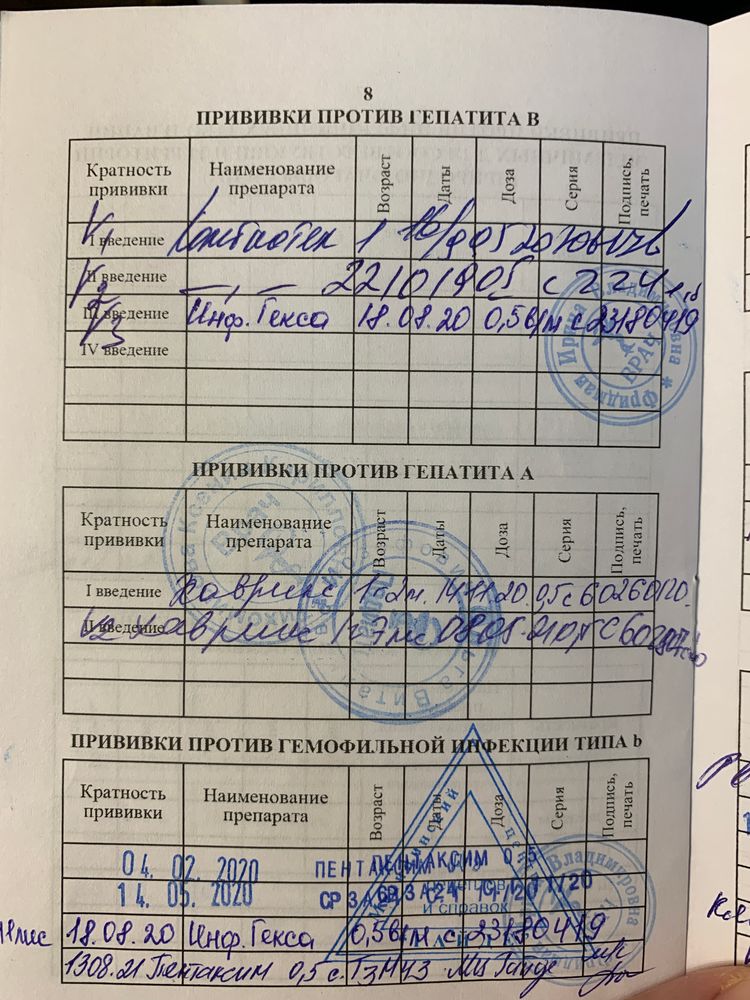 8
ПРИВИВКИ ПРОТИВ ГЕПАТИТА В
Кратность прививки Наименование препарата Возраст Даты Доза Серия Подпись, печать
V1 I введение 1
V2 II введение —„— 22/01 с 224
V3 III введение Инф. Гекса 18.08.20 0,5 в/м с 23180419
IV введение
ПРИВИВКИ ПРОТИВ ГЕПАТИТА А
Кратность прививки Наименование препарата Возраст Даты Доза Серия Подпись, печать
I введение Хаврикс 1г2м. 14.11.20. 0,5 с 60260120.
V2 II введение Хаврикс 1г7мс 08.05.21 0,5
ПРИВИВКИ ПРОТИВ ГЕМОФИЛЬНОЙ ИНФЕКЦИИ ТИПА b
Кратность прививки Наименование препарата Возраст Даты Доза Серия Подпись, печать
04. 02. 2020 ПЕНТАКСИМ 0,5
14. 05. 2020
18.08.20 Инф. Гекса 0,5 в/м с 23180419
13.08.21 Пентаксим 0,5 с.
ВРАЧ
Фридман Ирина Владимировна
Врач
и справок
Владимировна